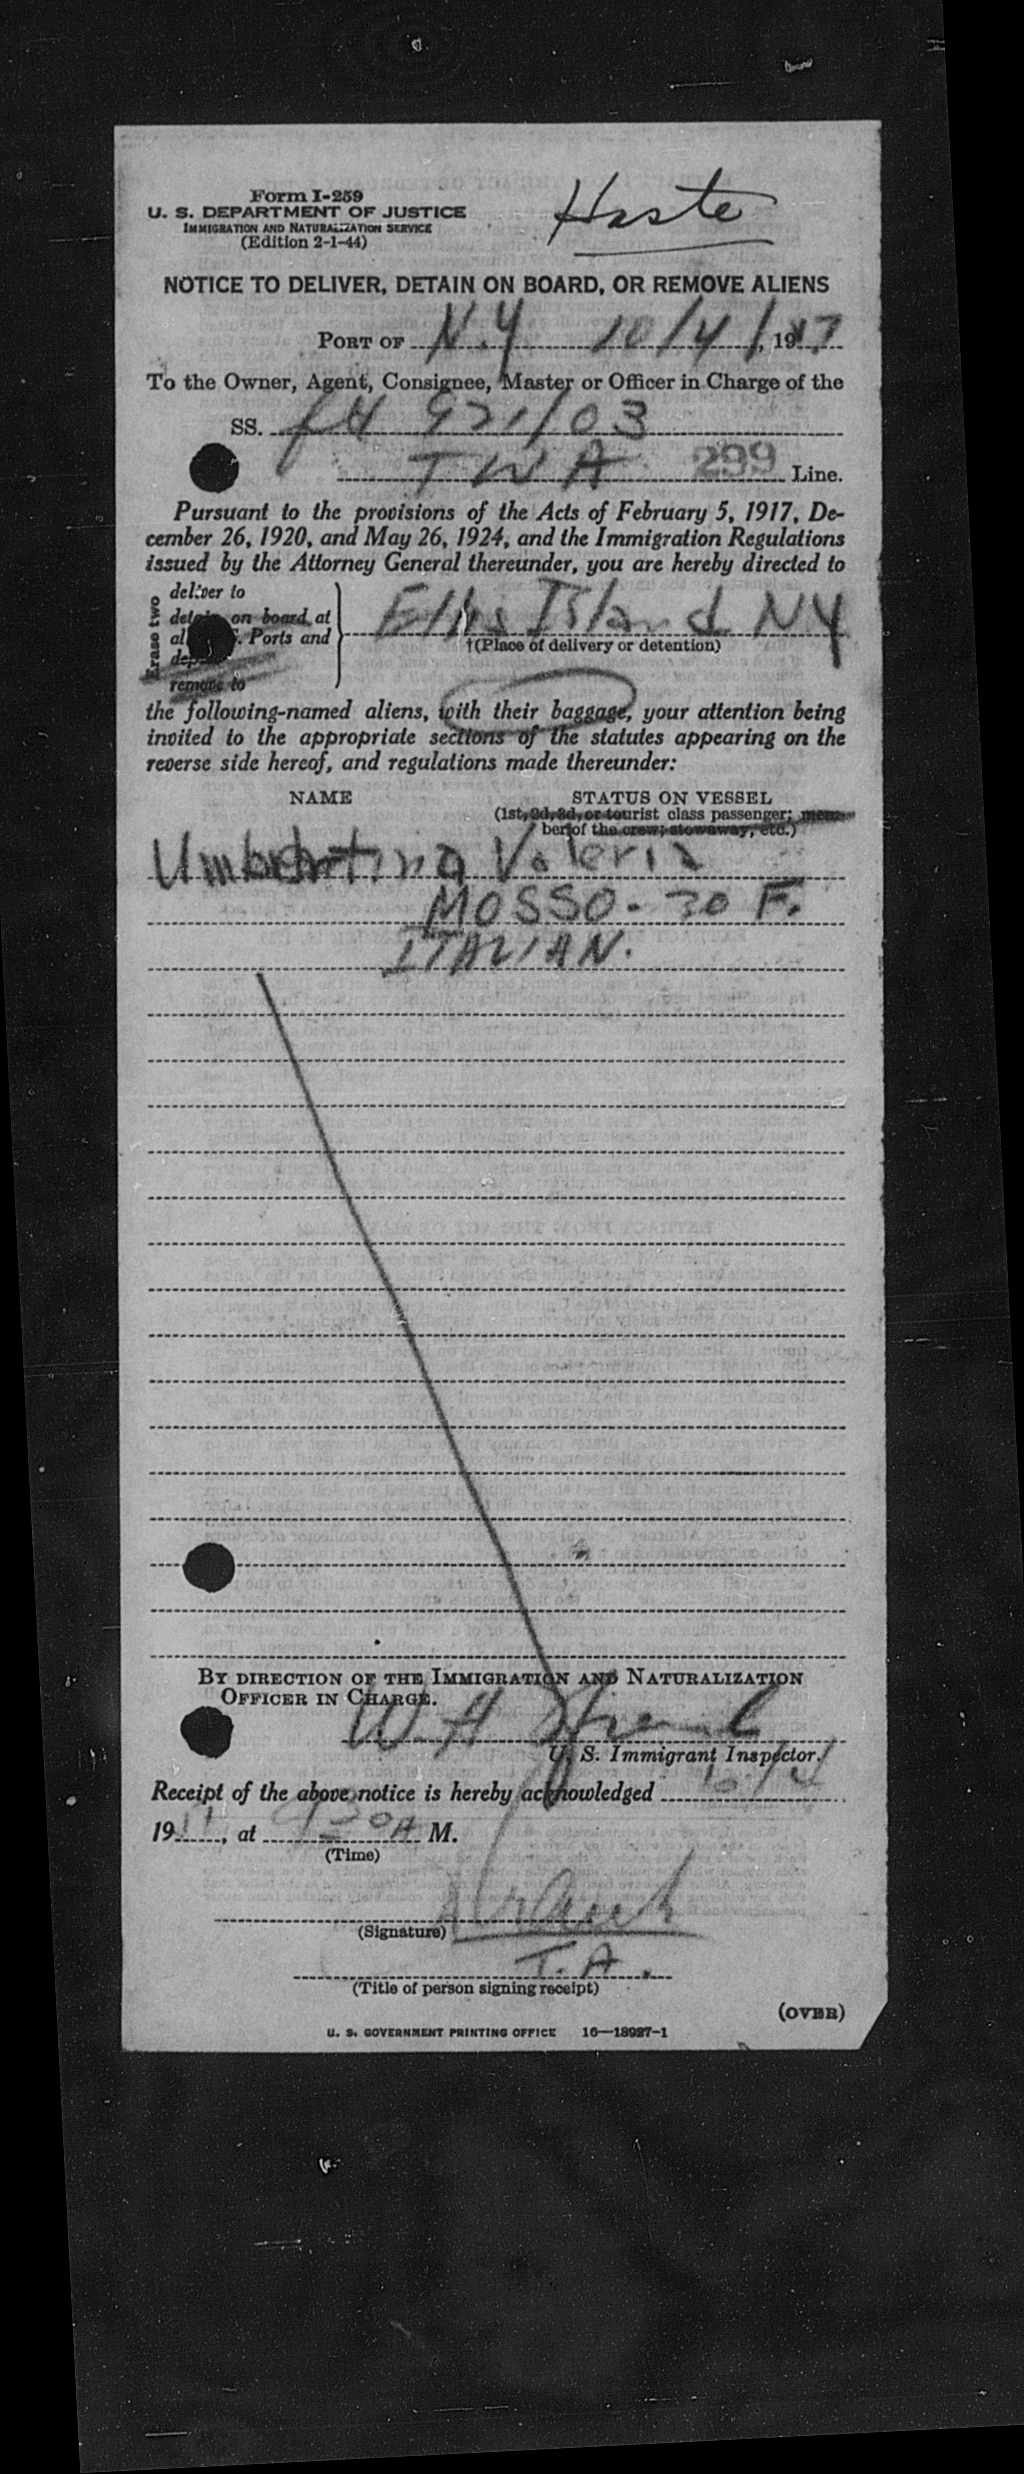 Form I-259
U. S. DEPARTMENT OF JUSTICE
IMMIGRATION AND NATURALIZATION SERVICE
(Edition 2-1-44)
Haste
NOTICE TO DELIVER, DETAIN ON BOARD, OR REMOVE ALIENS
PORT OF N.Y 10/4/, 1947
To the Owner, Agent, Consignee, Master or Officer in Charge of the
SS. 921/03
TWA 299 Line.
Pursuant to the provisions of the Acts of February 5, 1917, De-
cember 26, 1920, and May 26, 1924, and the Immigration Regulations
issued by the Attorney General thereunder, you are hereby directed to
Erase two
deliver to
detain on board at
Ports and
remove to
Ellis Island NY
†(Place of delivery or detention)
the following-named aliens, with their baggage, your attention being
invited to the appropriate sections of the statutes appearing on the
reverse side hereof, and regulations made thereunder:
NAME STATUS ON VESSEL
(1st, 2d, 3d, or tourist class passenger; mem-
ber of the crew; stowaway, etc.)
Umbertina Valeria
MOSSO - 30 F.
ITALIAN.
BY DIRECTION OF THE IMMIGRATION AND NATURALIZATION
OFFICER IN CHARGE.
W. A
U. S. Immigrant Inspector.
Receipt of the above notice is hereby acknowledged 10/4
19, at 930A M.
(Time)
(Signature)
T. A.
(Title of person signing receipt)
(OVER)
U. S. GOVERNMENT PRINTING OFFICE 16—18927-1